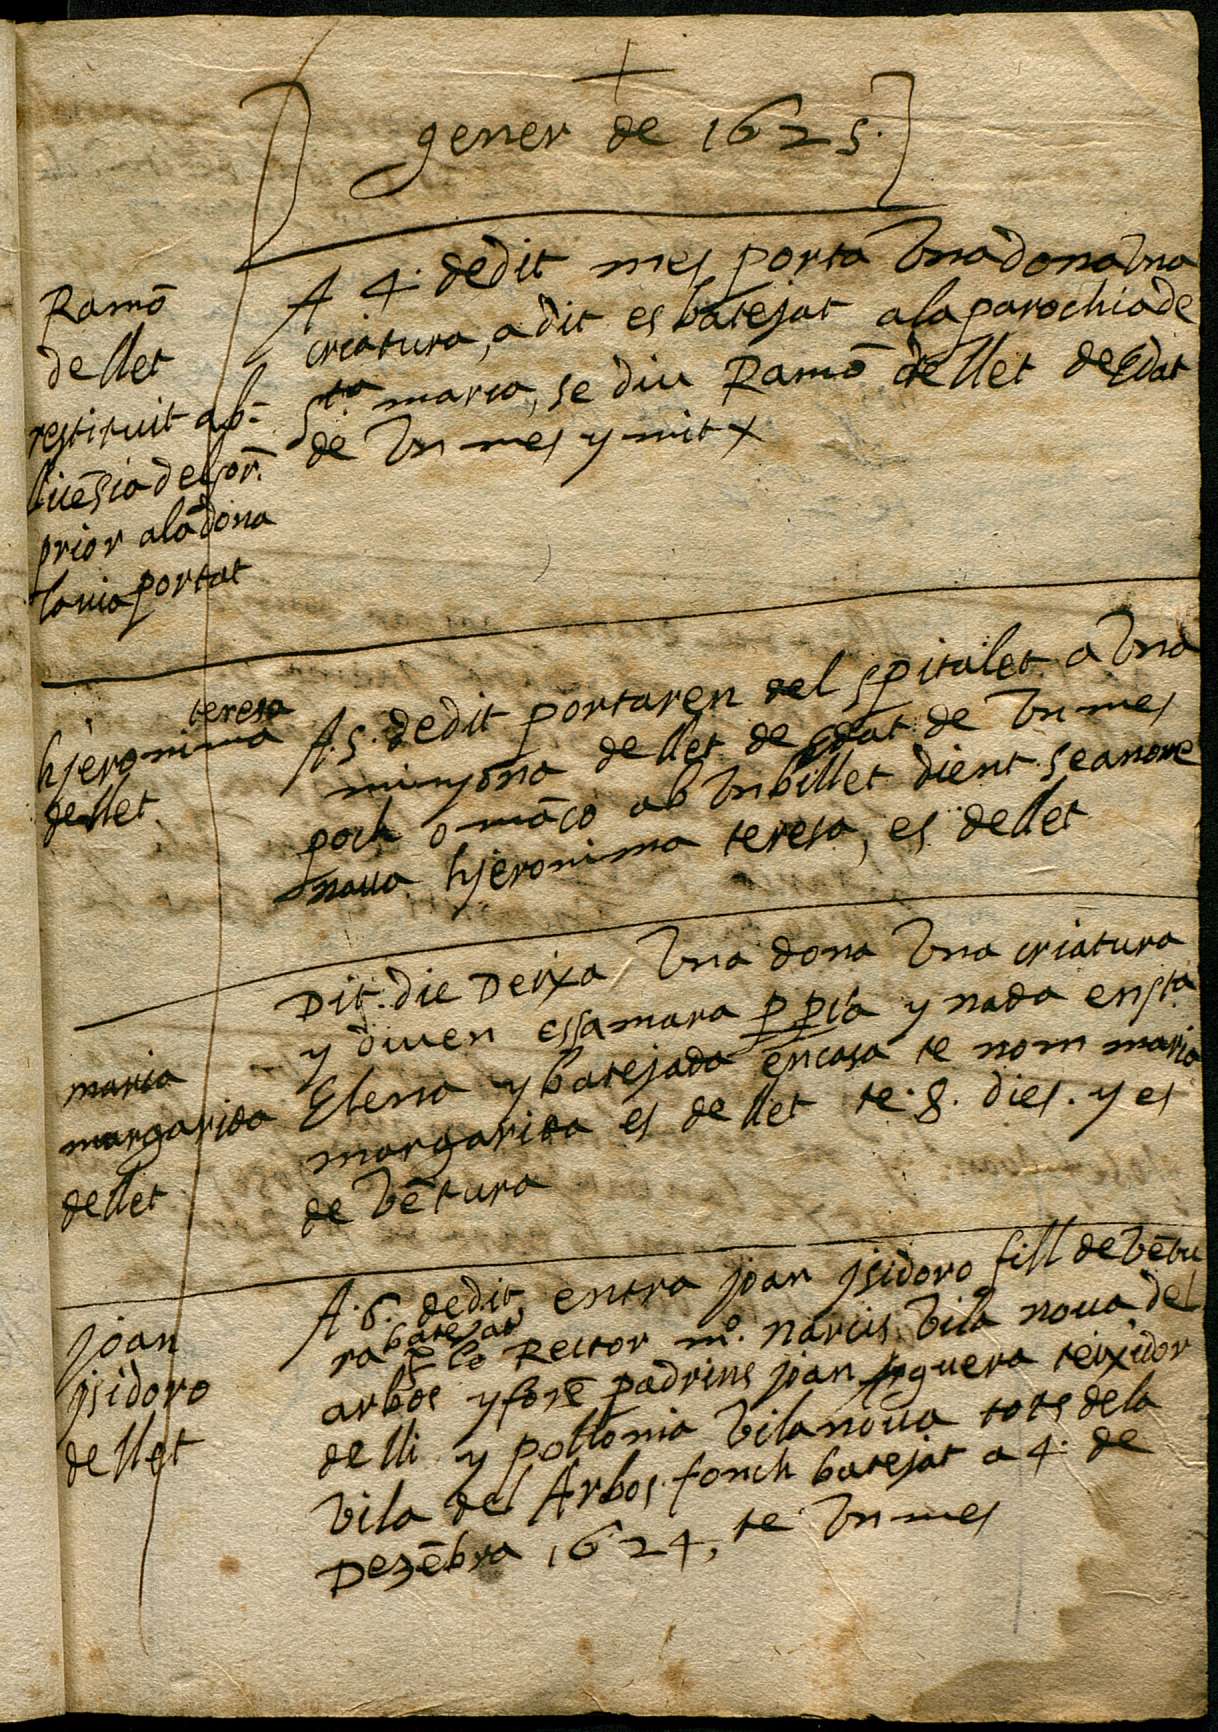 gener de 1625.
Ramō
de llet
restituit ab
llicēsia del sor.
prior a la dona
lauia portat
A 4. de dit mes porta Vna dona Vna
criatura, a dit es batejat a la parochia de
Sta maria, se diu Ramō de llet de Edat
de Vn mes y mitx
teresa
hjeronima
de llet.
A.5. de dit portaren del spitalet a Vna
minyona de llet de Edat de Vn mes
poch o māco ab Vn billet dient se anome
naua hjeronima teresa, es de llet
maria
margarida
de llet
Dit. die Deixa Vna dona Vna criatura
y diuen essa mara ppia y nada en sta
Elena y batejada en casa te nom maria
margarida es de llet te .8. dies. y es
de Vētura
joan
jsidoro
de llet
A.6. de dit, entra joan jsidoro fill de Vētu
ra batejat
p lo Rector mo. narcis Vila noua del
arbos y forē padrins joan figuera teixidor
de lli y pollonia Vilanoua tots de la
Vila del Arbos. fonch batejat a 4. de
Dezēbra 1624, te Vn mes